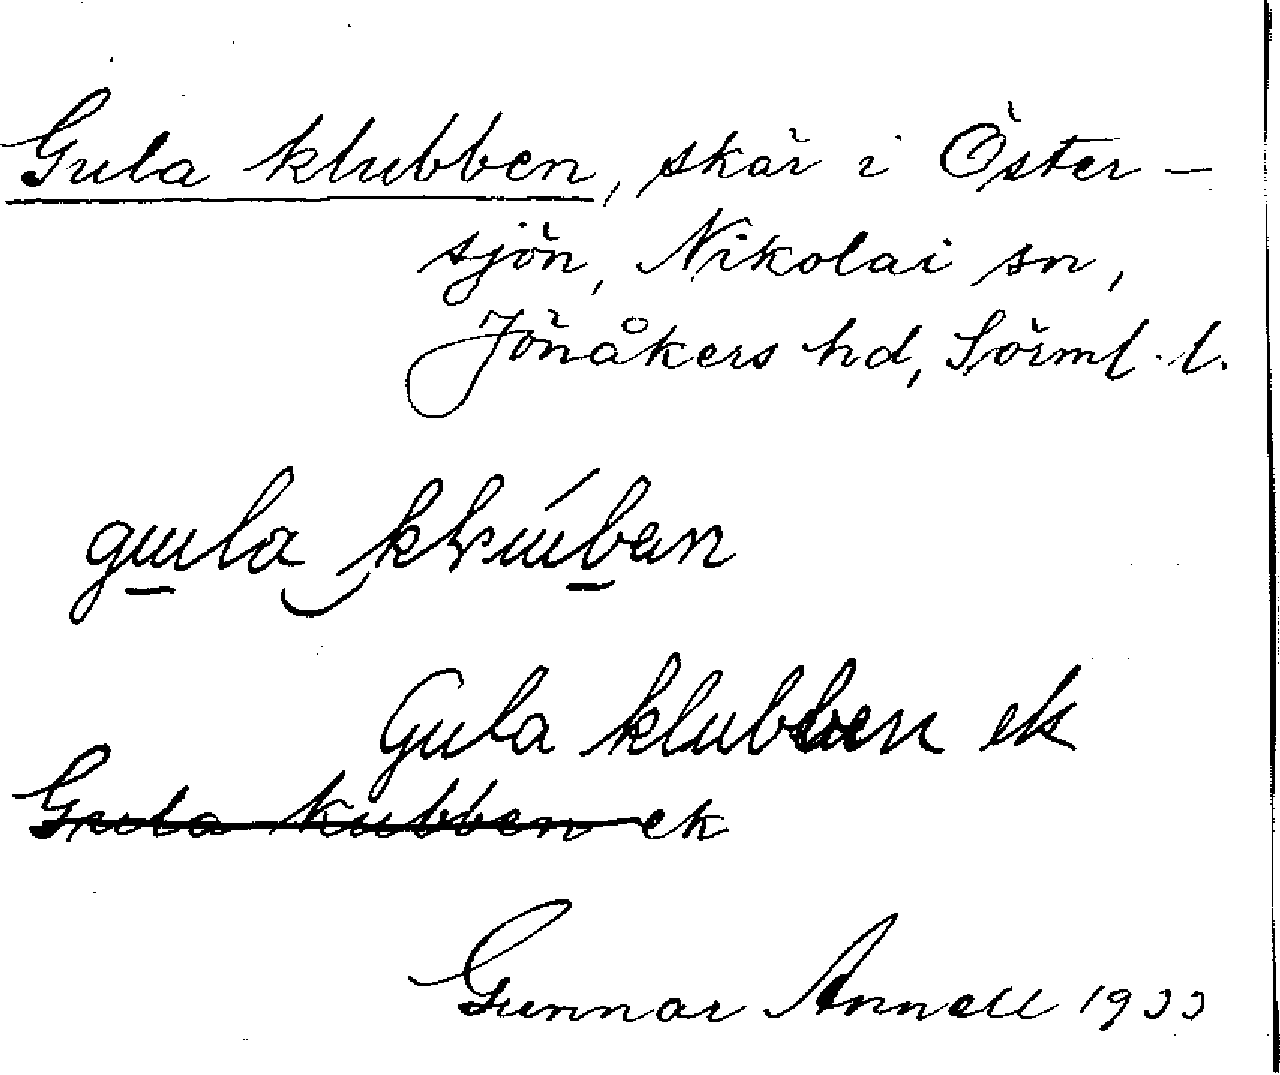 Gula klubben, skär i Öster-
sjön, Nikolai sn,
Jönåkers hd, Sörml. l.
gula
Gula klubben ek
Gula kubben ek
Gunnar Annell 1933